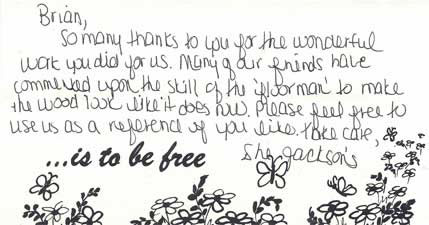 Brian,
So many thanks to you for the wonderful
work you did for us. Many of our friends have
commented upon the skill of the 'floorman' to make
the wood look like it does now. Please feel free to
use us as a reference if you like. Take care,
The Jackson's
...is to be free